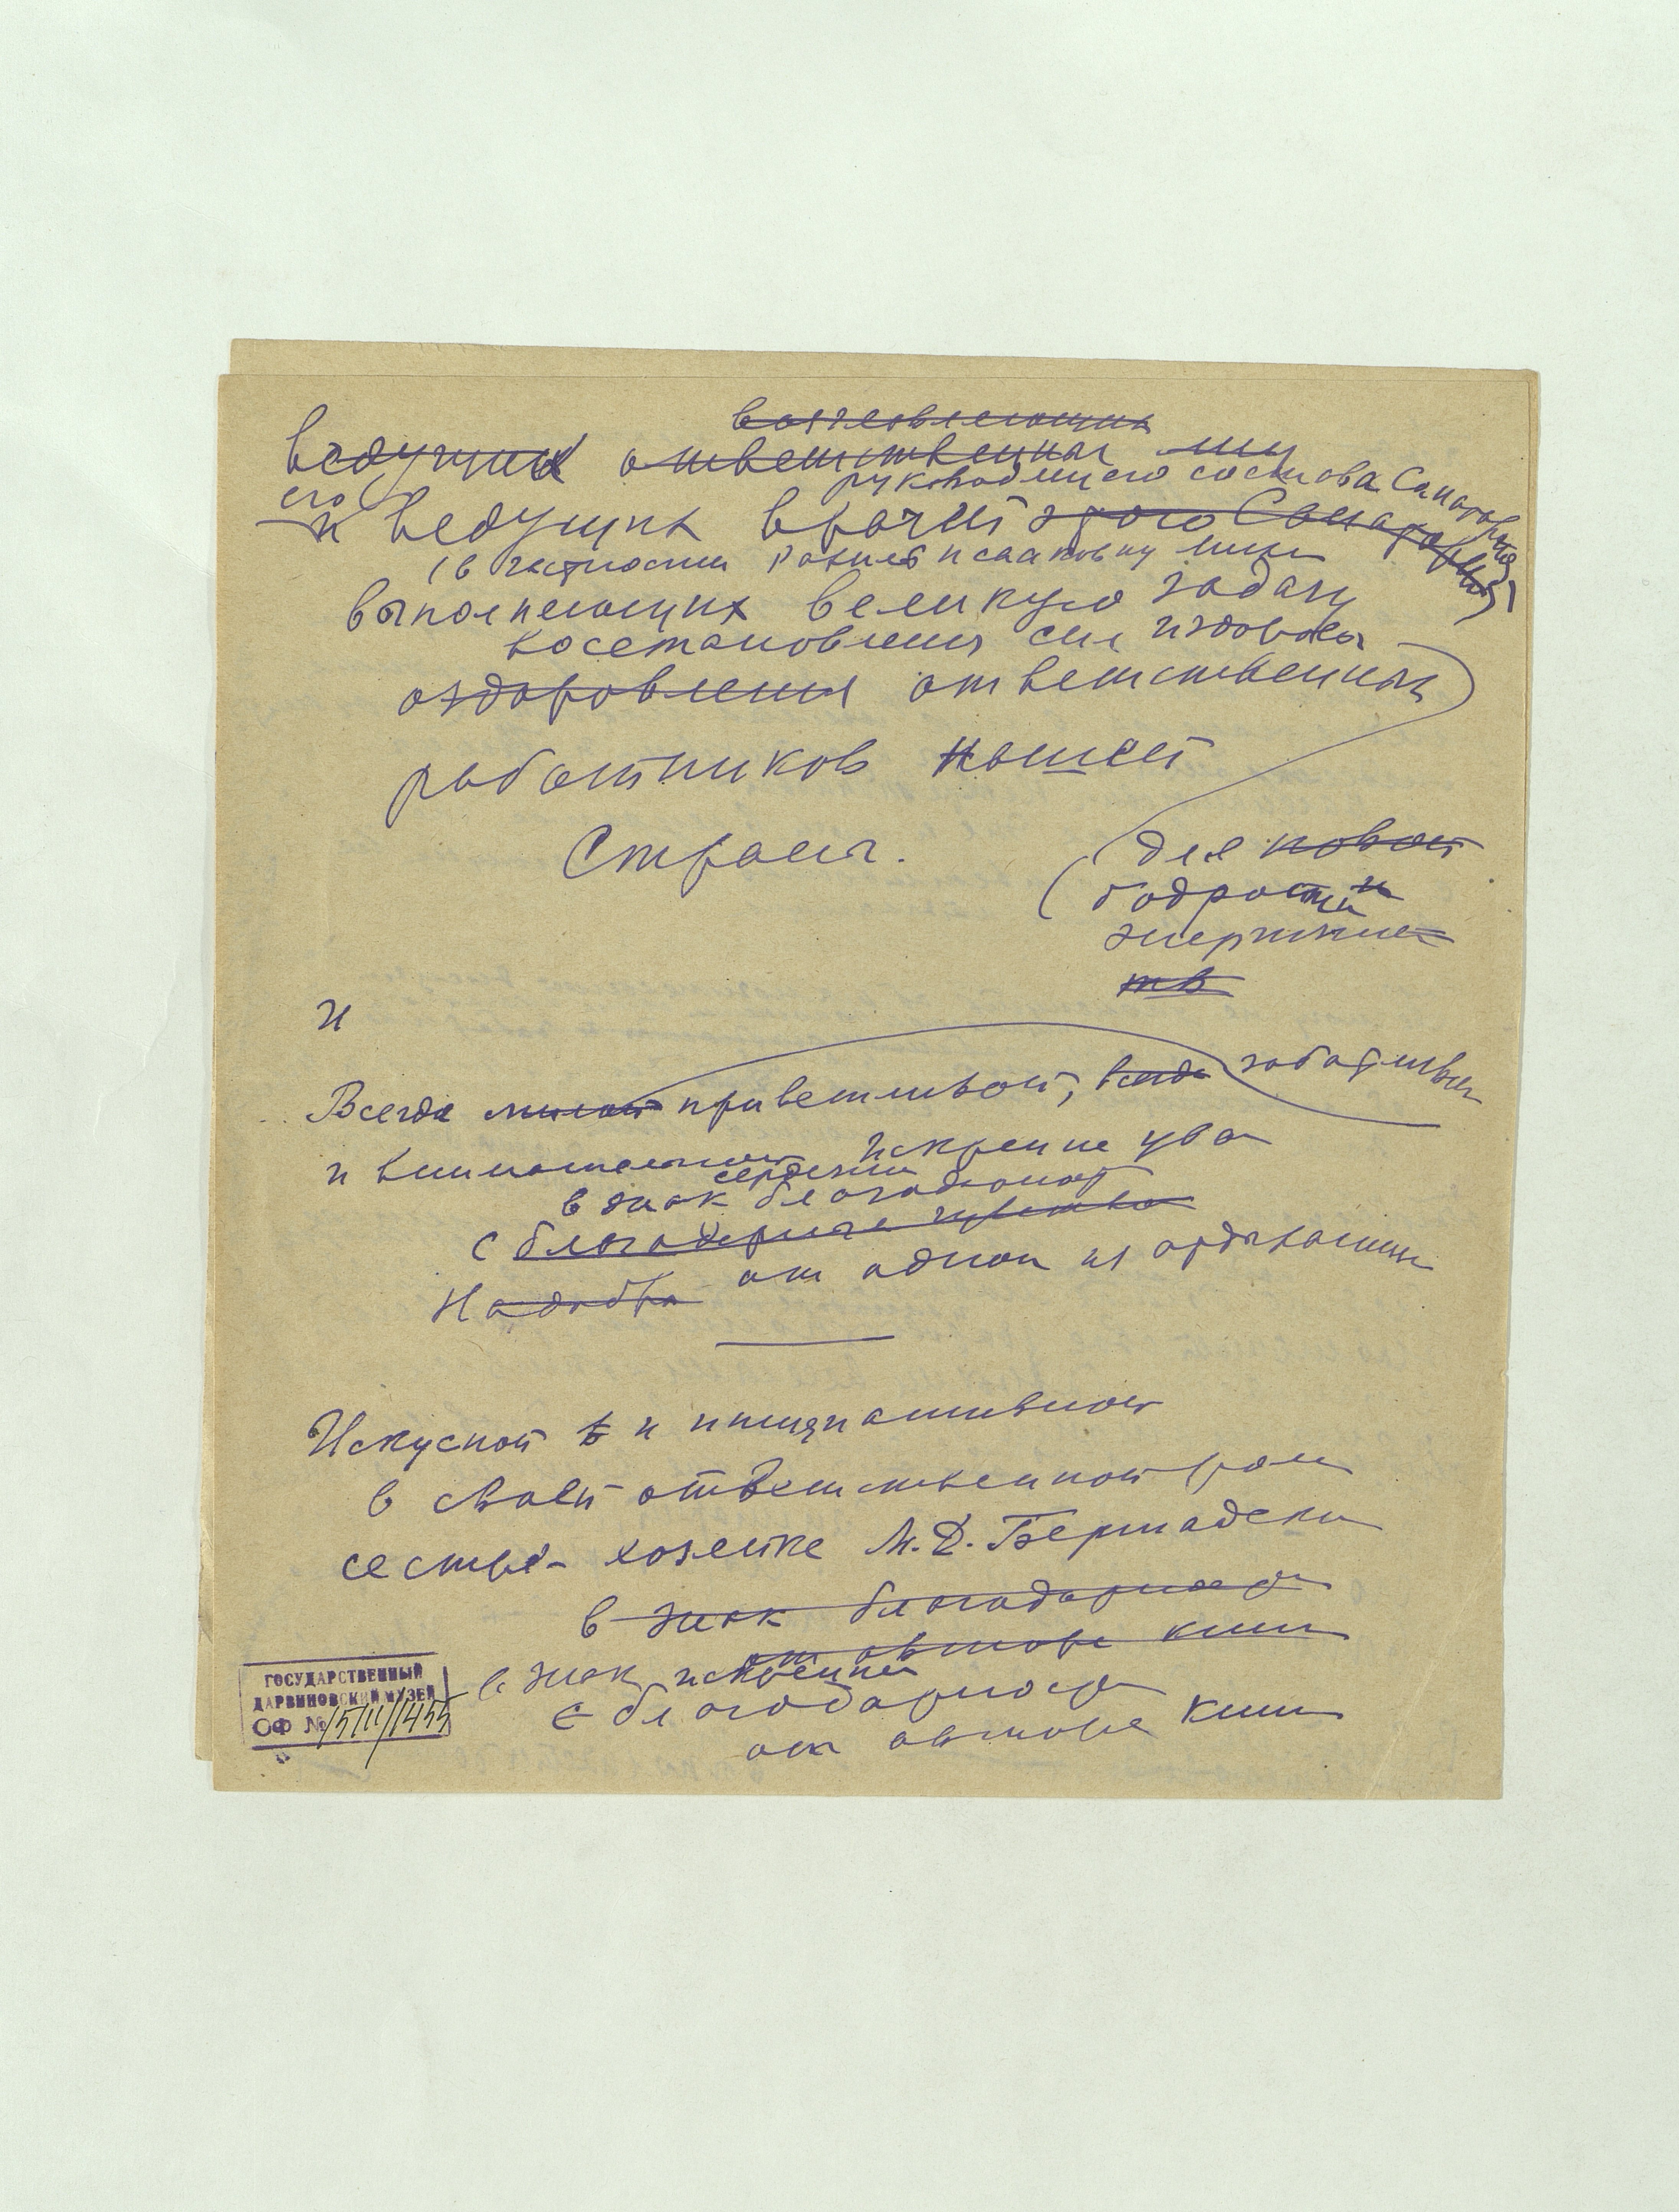 возглавляющих
ведущих ответственных
руководящего состава Санатория
его
и ведущих врачей этого Санатория
(в частности
выполняющих великую задачу
восстановления сил и здоровья
оздоровления ответственных
работников нашей
Страны.
для новой
бодрости и
энергии
тв
и
Всегда милой приветливой, всегда заботливой
и внимательной искренне ува
сердечной
в знак благодарност
с благодарным чувством
На добр от одной из отдыхающих
Искусной и инициативной
в своей ответственной роли
сестре-хозяйке М.Д. Бернадской
в знак благодарност
от автора книги
в знак искренней
с благодарност
от автора книги
ГОСУДАРСТВЕННЫЙ
ДАРВИНОВСКИЙ МУЗЕЙ
ОФ № 15111/1455